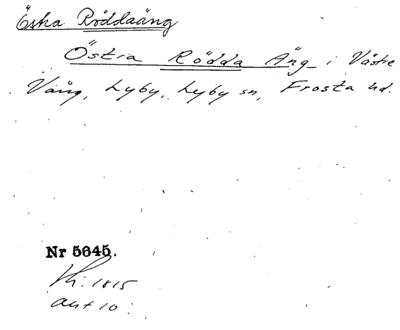 Eska Röddaäng
Östra Rödda Äng i Västre
Vång, Lyby, Lyby sn, Frosta hd.
Nr 5645.
1815
akt 10